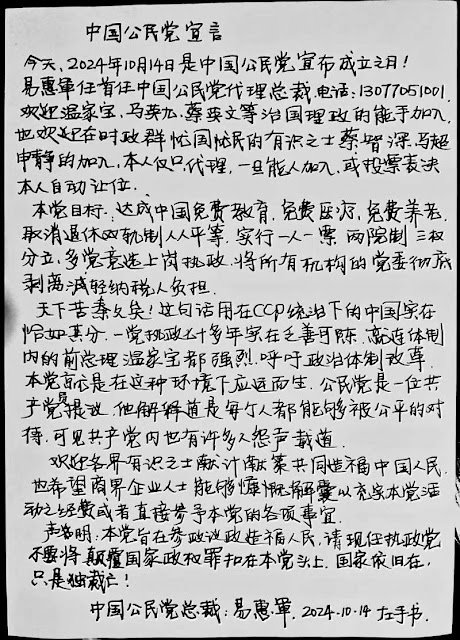 中国公民党宣言
今天，2024年10月14日是中国公民党宣布成立之日！
易惠军任首任中国公民党代理总裁，电话：13077051001，
欢迎温家宝，马英九，蔡英文等治国理政的能手加入，
也欢迎在时政群忧国忧民的有识之士蔡智深，马超
申静的加入，本人仅只代理，一旦能人加入，或投票表决
本人自动让位．
本党目标，达成中国免费教育，免费医疗，免费养老，
取消退休双轨制人人平等，实行一人一票，两院制，三权
分立，多党竞选上岗执政，将所有机构的党委彻底
剥离减轻纳税人负担．
天下苦秦久矣！这句话用在CCP统治下的中国实在
恰如其分．一党执政七十多年实在乏善可陈，就连体制
内的前总理温家宝都强烈．呼吁政治体制改革．
本党就是在这种环境下应运而生．公民党是一位共
产党员提议，他解释道是每个人都能够被公平的对
待，可见共产党内也有许多人怨声载道．
欢迎各界有识之士献计献策共同造福中国人民，
也希望商界企业人士能够慷慨解囊以充实本党活
动之经费或者直接参予本党的各项事宜．
声明：本党旨在参政议政造福人民，请现任执政党
不要将颠覆国家政权罪扣在本党头上．国家依旧在，
只是独裁亡！
中国公民党总裁：易惠军，2024.10.14 左手书．